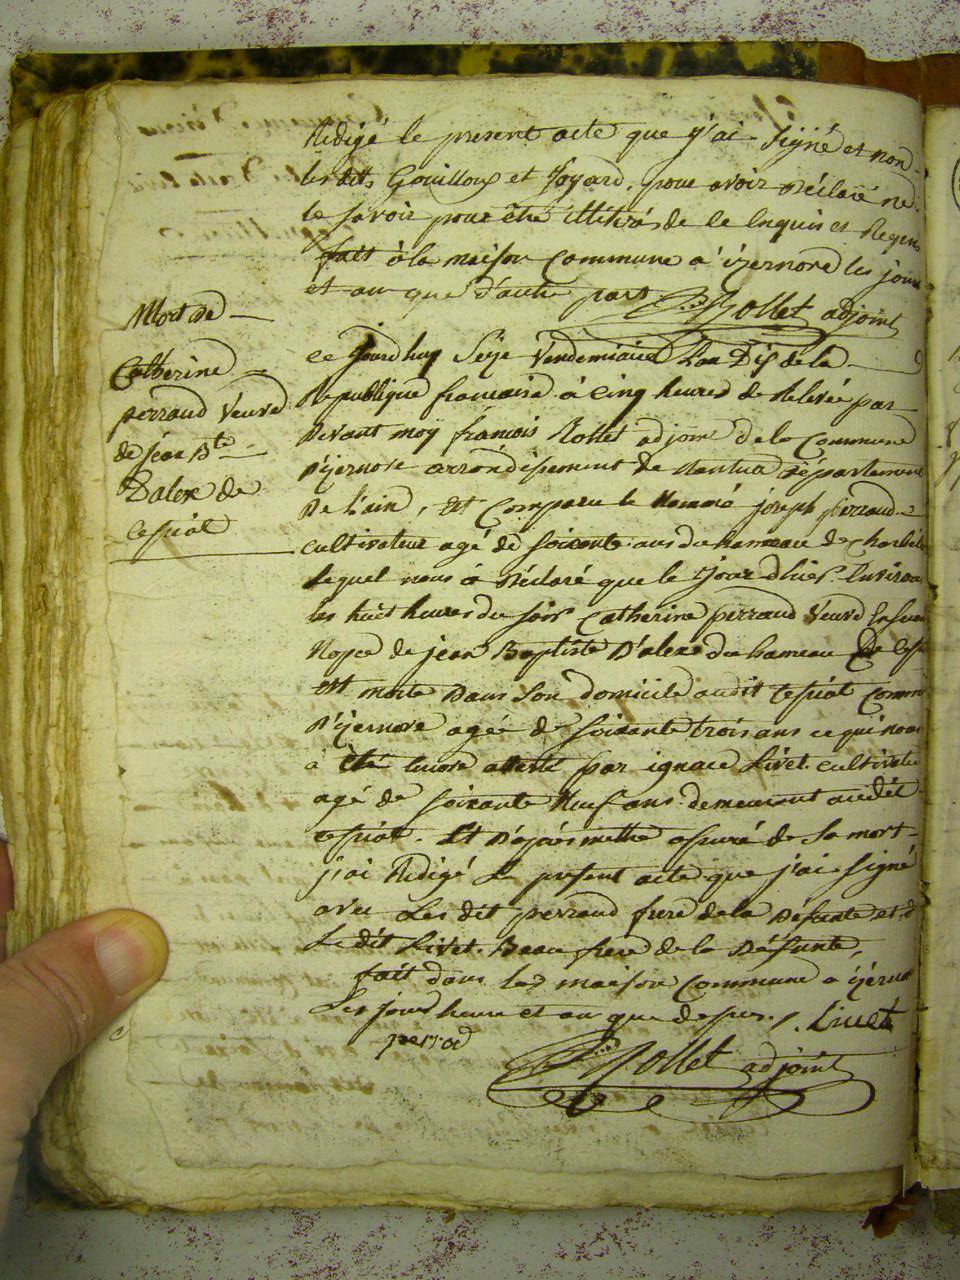 Redigé le present acte que j'ai signé et non
les dits Gouilloux et Joyard, pour avoir déclaré ne
le savoir pour être illitérés de ce Enquis et Requis
fait à la maison Commune a izernore les jour
et an que d'autre part Rollet adjoint
Mort de
Catherine
perraud Veuve
de jean Bte
Dalex de
Cessiat
Ce Jourdhuy Seize Vendemiaire L'an Dix de la
Republique francaise à cinq heures de Relevée par
Devant moy francois Rollet adjoint de la Commune
D'izernore arrondissement de Nantua département
De l'ain, est Comparu le Nommé joseph perraud
cultivateur agé de soixante ans du hameau de
lequel nous à déclaré que le Jour d'hier Environ
les huit heures du soir Catherine perraud Veuve En
Nopce de jean Baptiste D'alex du hameau de
est morte Dans son domicile audit Cessiat Commune
D'izernore agée de soixante trois ans ce qui nous
à été Encore attesté par ignace Livet cultivateur
agé de soixante Neuf ans demeurant audit
Cessiat. Et D'après m'etre assuré de Sa mort
j'ai Redigé Le present acte que j'ai signé
avec Les dit perraud frere de la Defunte et
Le dit Livet Beau frere de la Defunte,
fait dans la maison Commune a izernore
Les jour heure et an que dessus. Livet
perrod
Rollet adjoint